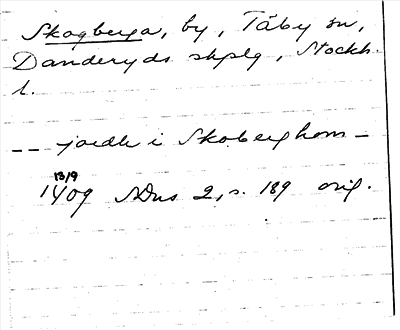 Skogberga, by, Täby sn,
Danderyds skplg, Stockh.
l.
-- jordh i Skoberghom –
13/9
1409 SDns 2, s. 189 orig.